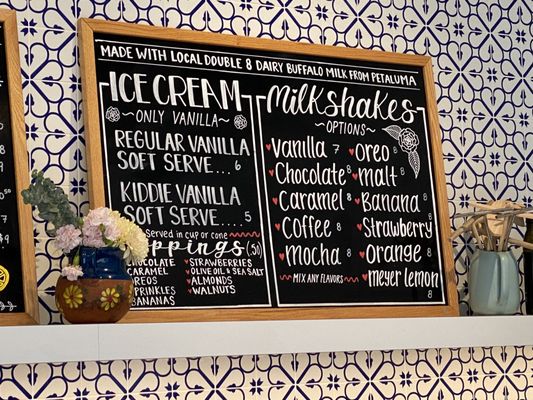 MADE WITH LOCAL DOUBLE 8 DAIRY BUFFALO MILK FROM PETALUMA
ICE CREAM
~ONLY VANILLA~
REGULAR VANILLA
SOFT SERVE... 6
KIDDIE VANILLA
SOFT SERVE.... 5
Served in cup or cone
.50
CARAMEL
BANANAS
STRAWBERRIES
OLIVE OIL & SEA SALT
ALMONDS
WALNUTS
Milkshakes
~OPTIONS~
Vanilla 7
Chocolate 8
Caramel 8
Coffee 8
Mocha 8
~MIX ANY FLAVORS~
Oreo 8
Malt 8
Banana 8
Strawberry 8
Orange 8
Meyer Lemon
8